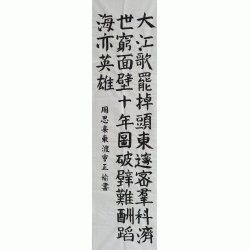 大江歌罷掉頭東邃密羣科濟
世窮面壁十年圖破壁難酬蹈
海亦英雄
周恩來東渡
書